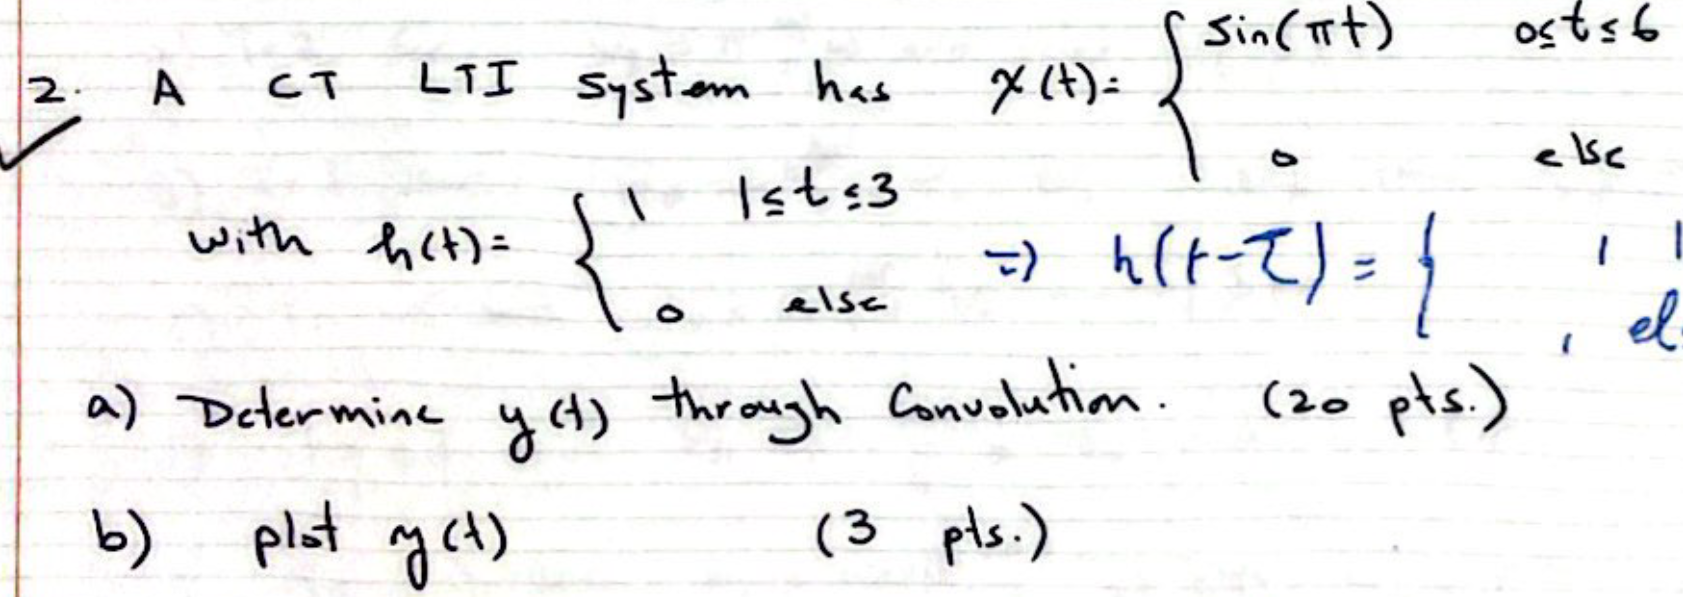 2. A CT LTI system has x(t)= { sin(πt) 0≤t≤6
0 else
with h(t)= { 1 1≤t≤3 ⇒ h(t-τ) = { 1 1
0 else , el
a) Determine y(t) through Convolution. (20 pts.)
b) plot y(t) (3 pts.)